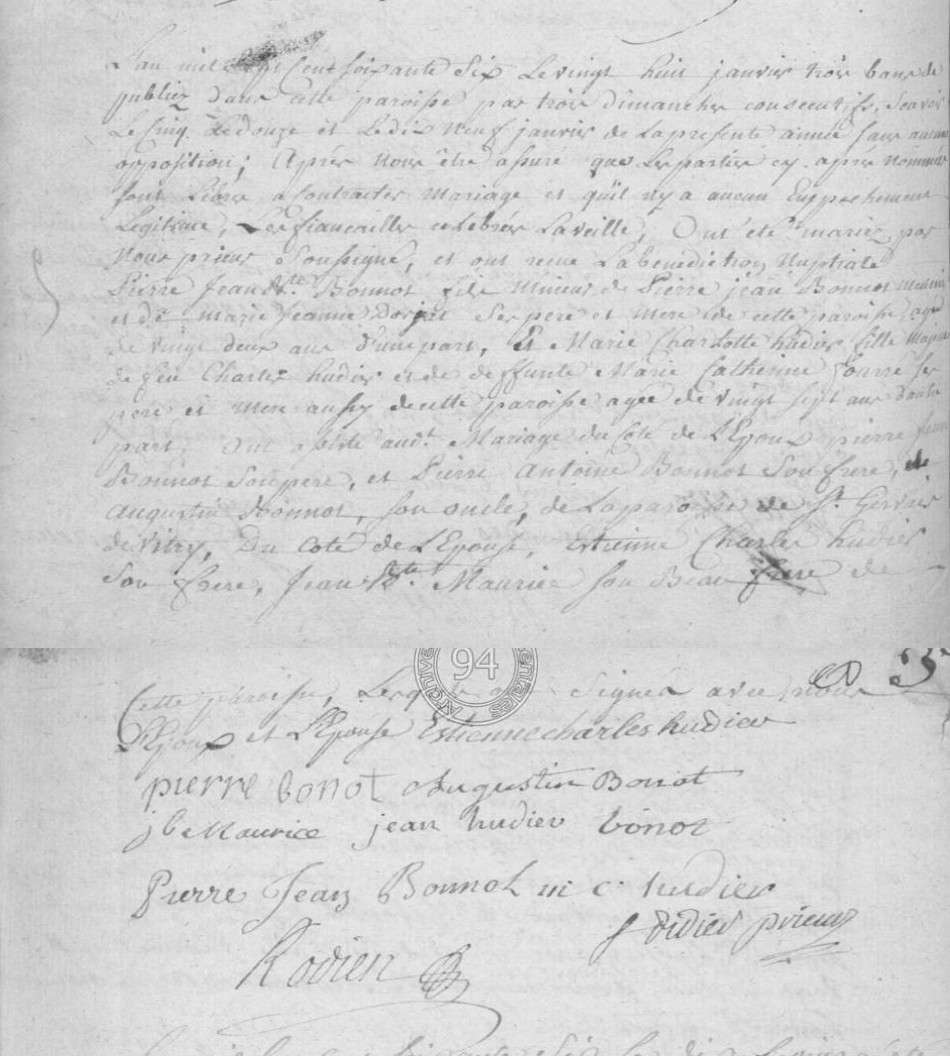 L'an mil sept Cent soixante Six Le vingt huit janvier trois bans de
publiez dans cette paroisse par trois dimanches consecutifs, Scavoir
Le Cinq Le douze et Le dix neuf janvier de La presente année sans aucune
opposition; Après Nous être assuré que Les parties cy après Nommées
sont Libres a Contracter Mariage et qu'il n'y a aucun Empechement
Legitime, Les fiancailles celebrées La veille, Ont été mariez par
Nous prieur Soussigné, et ont reçue La benediction Nuptiale
Pierre Jean Bte. Bonnot fils Mineur de Pierre jean Bonnot
et de marie jeanne Ses pere et Mere de cette paroisse, agé
de vingt deux ans d'une part, Et Marie Charlotte hudier fille Majeure
de feu Charles hudier et de deffunte Marie Catherine fourré Ses
pere et mere aussy de cette paroisse agée de vingt sept ans d'autre
part, Ont assisté audt. Mariage du Coté de L'Epoux pierre jean
Bonnot Son pere, et Pierre Antoine Bonnot Son frere, et
Augustin Bonnot, Son oncle, de La paroisse de St. Gervais
de Vitry, Du Coté de L'Epouse, Estienne Charles hudier
Son frere, Jean Bte. Maurice Son Beau frere de
94
Cette paroisse, Lesquels ont Signés avec nous
L'Epoux et L'Epouse Estienne charles hudier
pierre bonot Augustin Bonot
jb Maurice jean hudier bonot
Pierre Jean Bonnot m c hudier
f didier prieur
Rodien